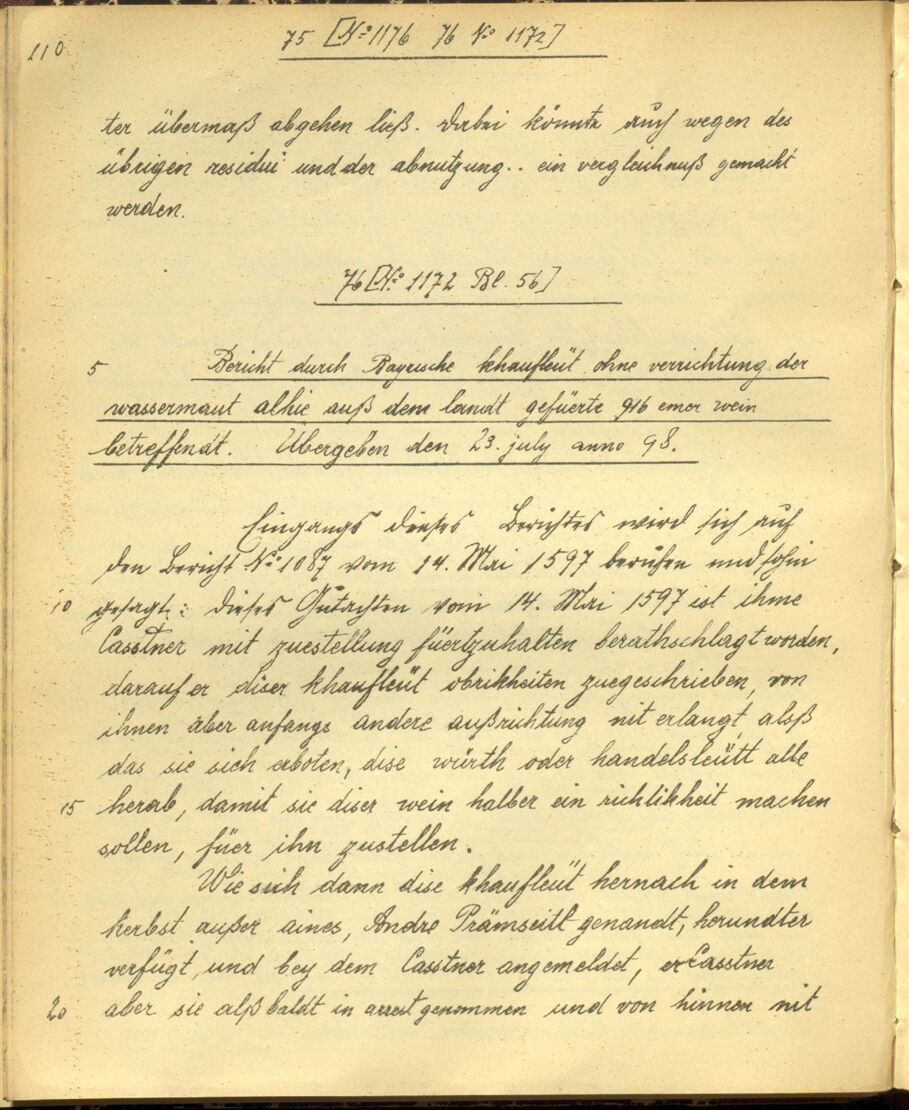 110
75 [No 1176 76 No 1172]
ter übermaß abgehen ließ. Dabei könnte auch wegen des
übrigen residui und der abnutzung.. ein vergleichnuß gemacht
werden.
76 [No 1172 Bl. 56]
5 Bericht durch Bayrische khaufleüt ohne verrichtung der
wassermaut alhie auß dem landt gefüerte 916 emer wein
betreffendt. Übergeben den 23. july anno 98.
Eingangs dieses Berichtes wird sich auf
den Bericht No 1087 vom 14. Mai 1597 berufen und sohin
10 gesagt: dieses Gutachten vom 14. Mai 1597 ist ihme
Casstner mit zuestellung füertzuhalten berathschlagt worden,
darauf er diser khaufleüt obrikheiten zuegeschrieben, von
ihnen aber anfangs andere außrichtung nit erlangt, alsß
das sie sich erboten, dise würth oder handelsleütt alle
15 herab, damit sie diser wein halber ein richlikheit machen
sollen, füer ihn zustellen.
Wie sich dann dise khaufleüt hernach in dem
herbst außer aines, Andre Prämseitl genandt, herundter
verfügt, und bey dem Casstner angemeldet, er Casstner
20 aber sie alßbaldt in arrest genommen und von hinnen nit